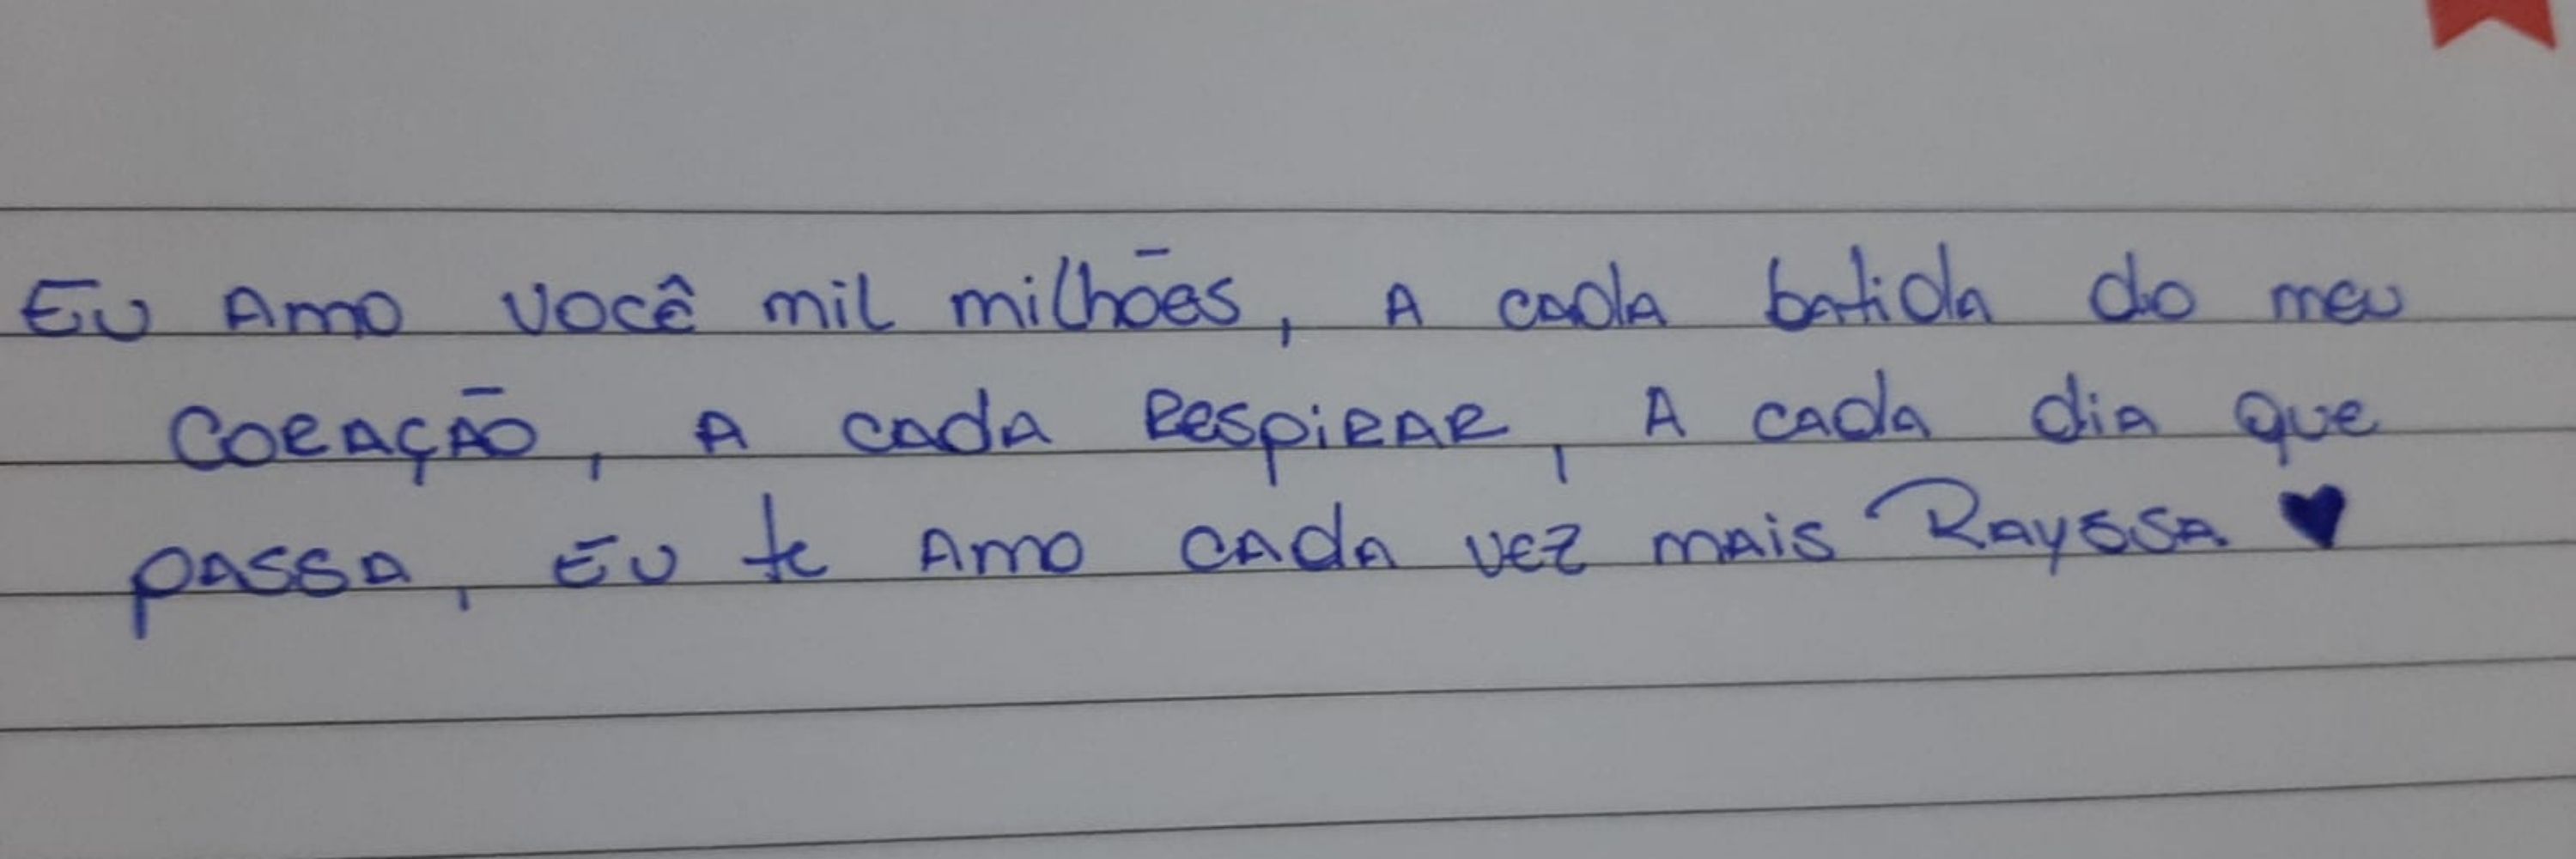 Eu Amo você mil milhões, A cada batida do meu
Coração, A cada Respirar, A cada dia que
passa, Eu te Amo cada vez mais Rayssa ♥